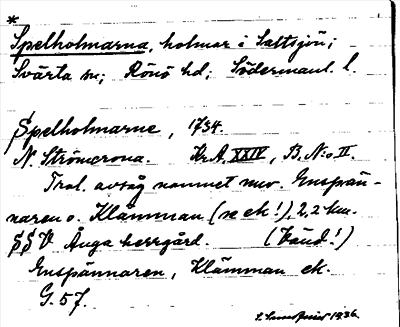 *
Spelholmarna, holmar i Saltsjön;
Svärta sn; Rönö hd; Södermanl. l.
Spelholmarne, 1734.
N. Strömcrona. Kr. A. XXIV, B. N:o II.
Trol. avsåg namnet nuv. Enspän-
naren o. Klämman (se ek!), 2,2 km.
SSV Ånga herrgård. (Band!)
Enspännaren, Klämman ek.
G. 57.
1936